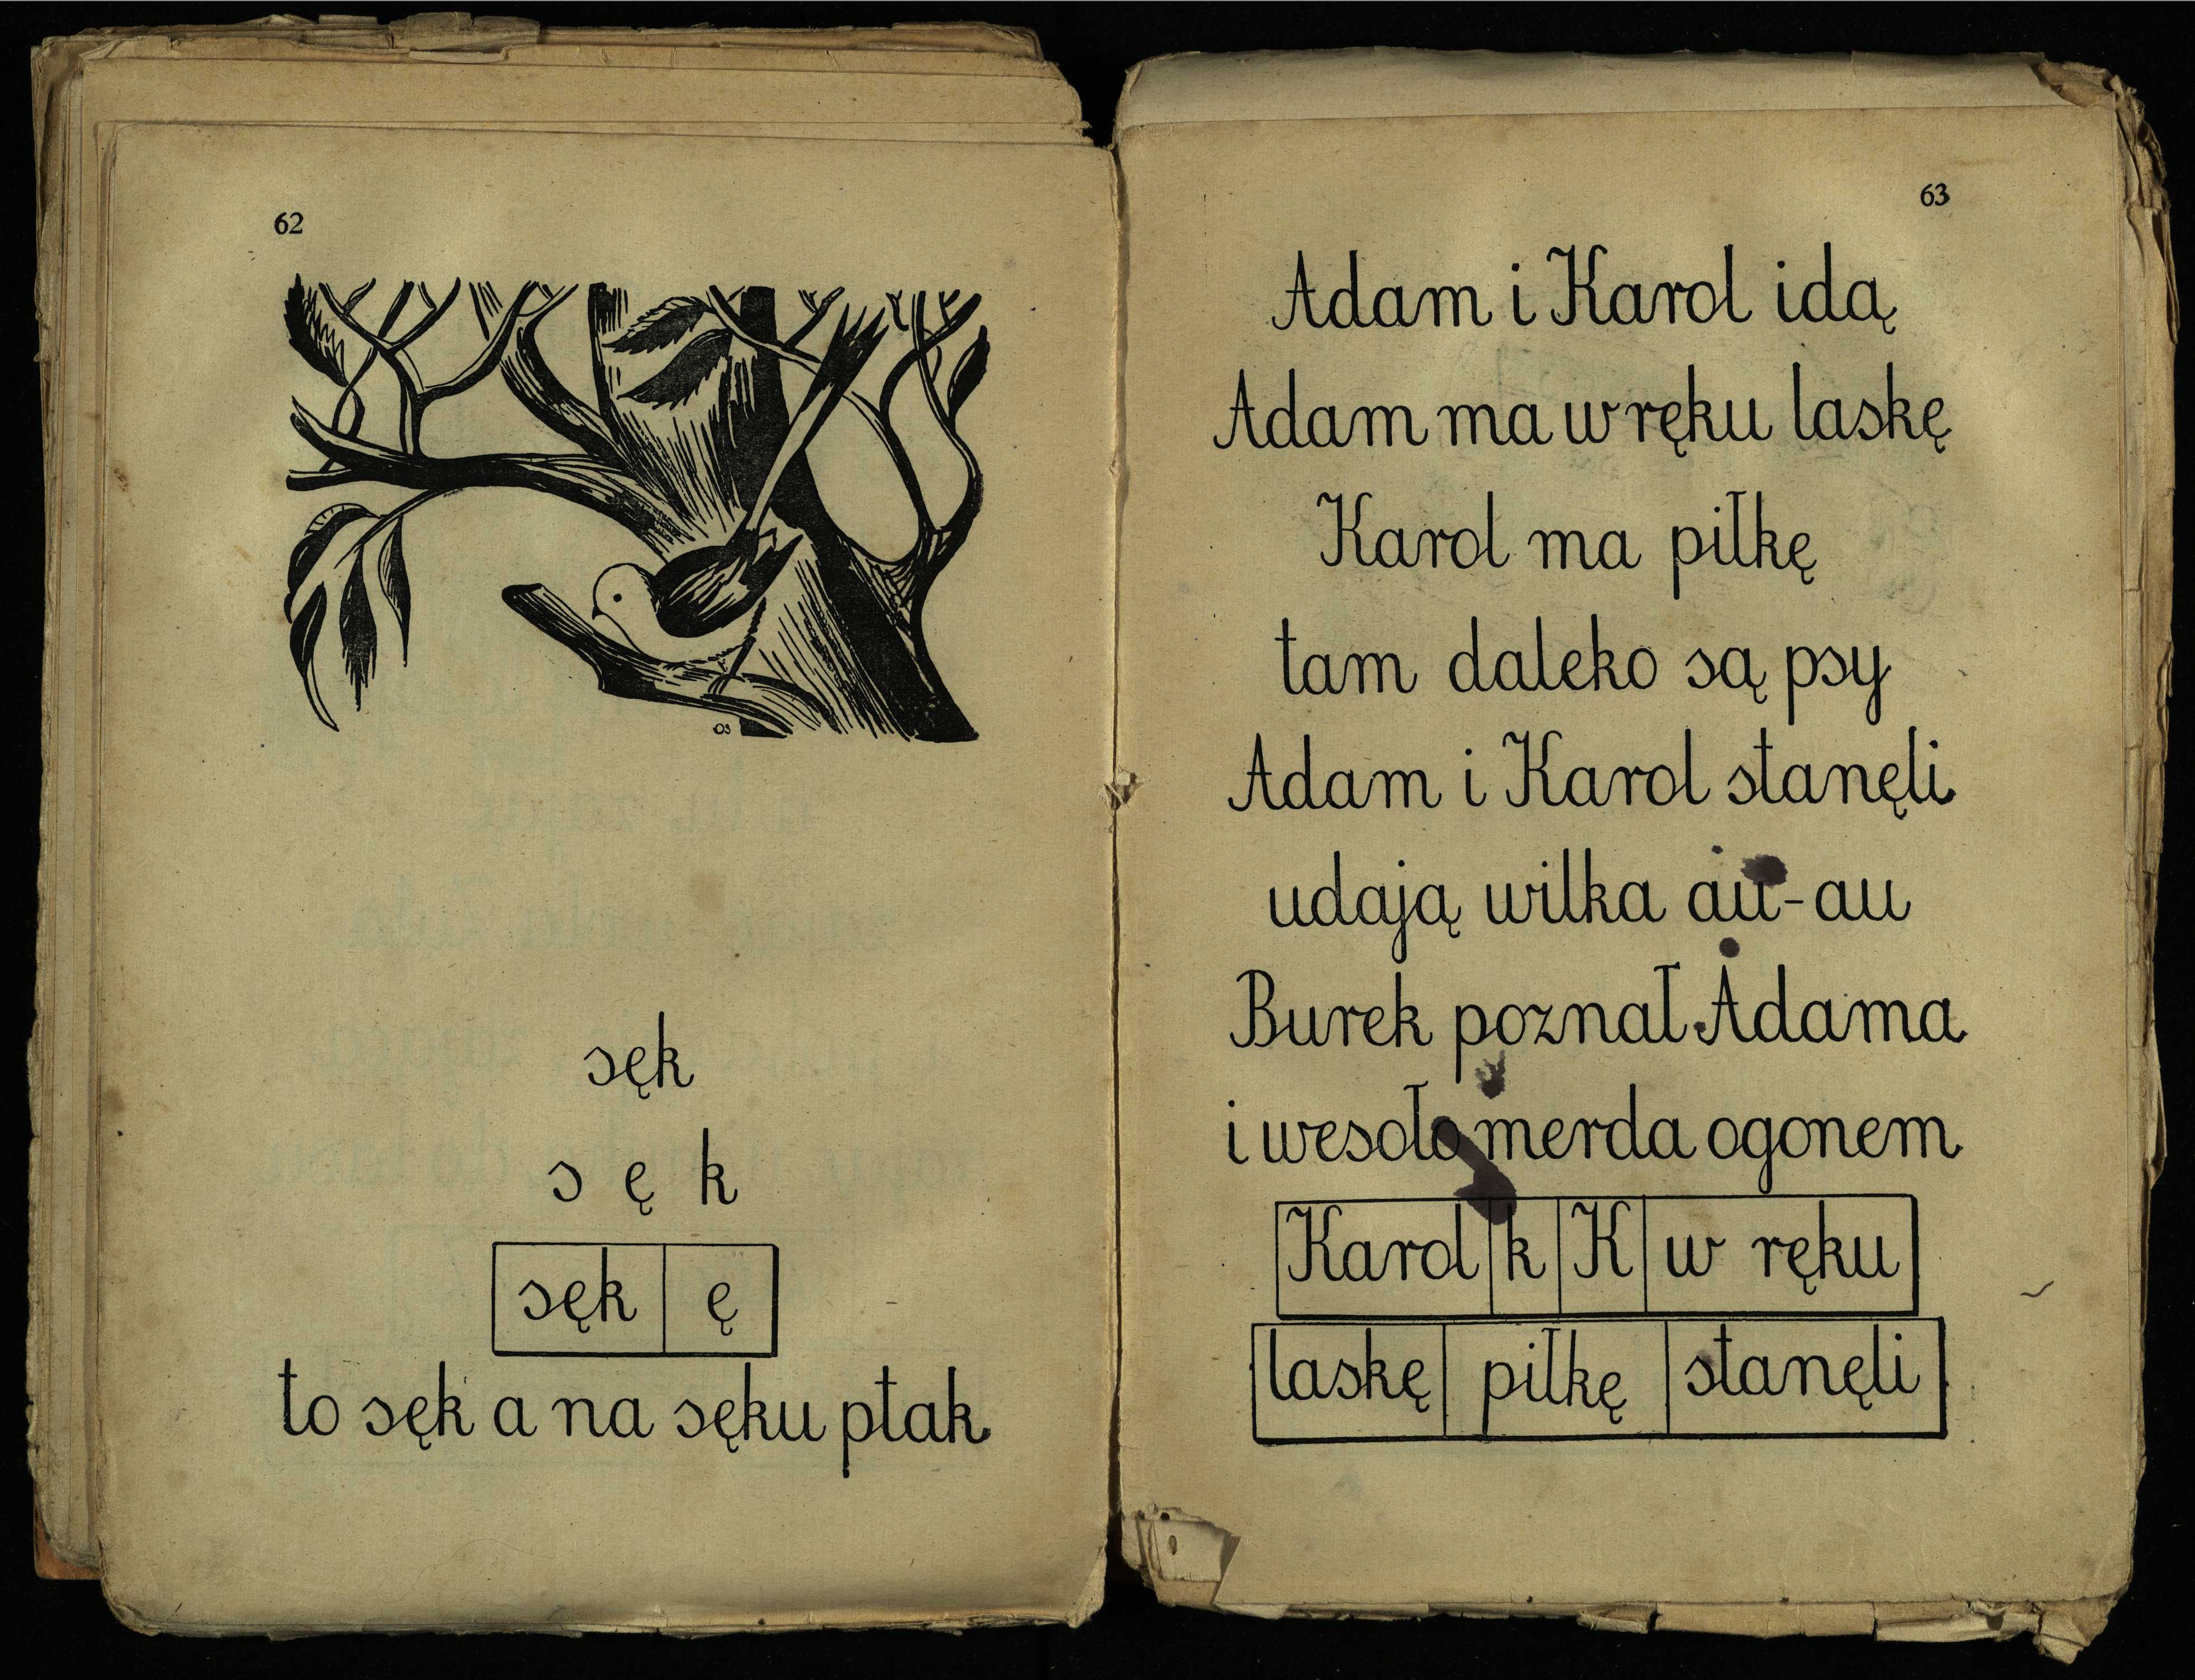 62
OS
sęk
s ę k
sęk ę
to sęk a na sęku ptak
63
Adam i Karol idą
Adam ma w ręku laskę
Karol ma piłkę
tam daleko są psy
Adam i Karol stanęli
udają wilka au-au
Burek poznał Adama
i wesoło merda ogonem
Karol k K w ręku
laskę piłkę stanęli